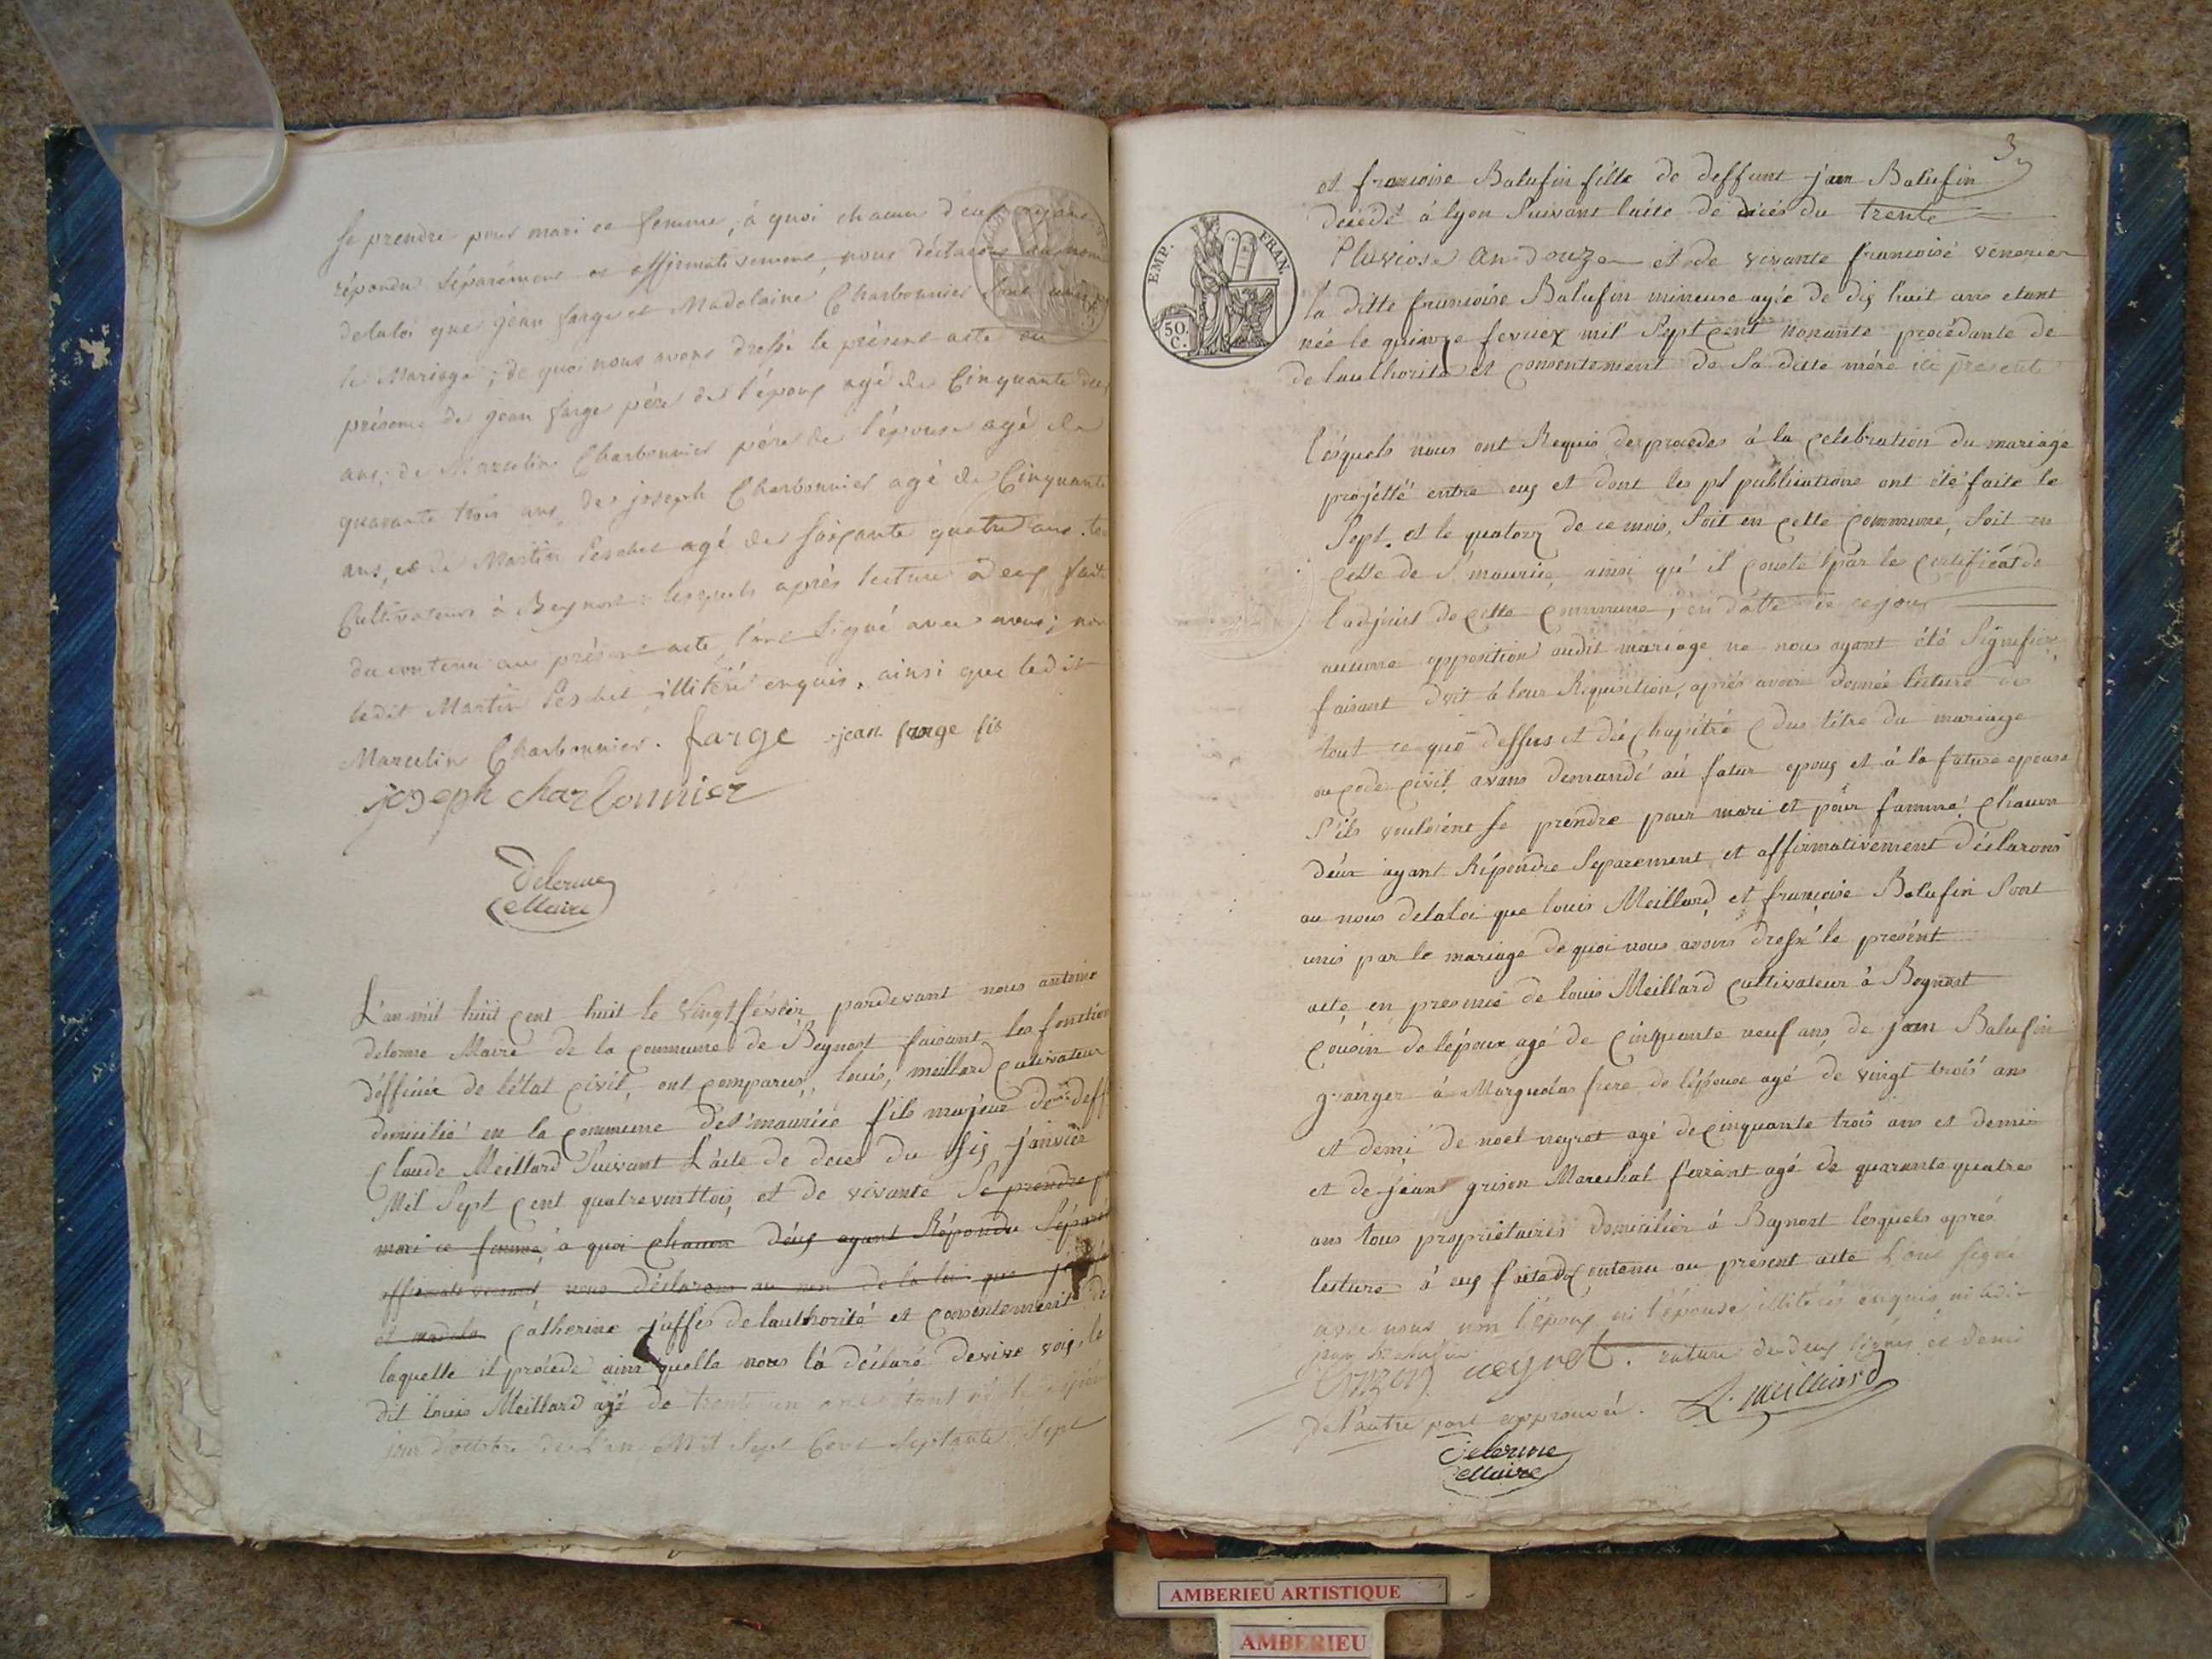 se prendre pour mari et femme, à quoi chacun deux ayant
répondu séparément et affirmativement, nous déclarons au nom
delaloi que jean farge et Madelaine Charbonnier sont unis
le Mariage ; de quoi nous avons dressé le présent acte en
présence de jean farge père de l'époux agé de Cinquante deux
ans, de Marcelin Charbonnier père de l'épouse agé de
quarante trois ans, de joseph Charbonnier agé de Cinquante
ans, et de Martin Peschet agé de soixante quatre ans. tous
Cultivateurs à Beynost : lesquels après lecture à eux faite
du contenu au présent acte l'ont signé avec nous ; non
ledit Martin Peschet illitéré enquis, ainsi que ledit
Marcelin Charbonnier. farge jean farge fis
joseph charbonnier
Delorme
Maire
L'an mil huit cent huit le vingt févrir pardevant nous antoine
delorme Maire de la commune de Beynost faisant les fonction
d'officier de l'état civil, ont comparus, louis, meillard cultivateur
domicilié en la commune de St mauricé fils majeur de deff
Claude Meillard Suivant L'acte de deces du six janvier
Mil Sept cent quatrevinttois, et de vivante se prendre p
mari et femme, à quoi chacun deux ayant Répondu Séparé
affirmativement nous déclarons au nom de la loi que
et madela Catherine jaffés delauthorité et consentement de
laquelle il procéde ainsi quelle nous la déclaré devive voix, le
dit louis Meillard agé de trente un ans étant né le
jour d'octobre de l'an Mil Sept Cent Septante Sept
3
et francoise Balufin fille de deffunt jean Balufin
décédé à lyon suivant lacte de décés du trente
Pluviose an douze et de vivante francoise venerier
la ditte francoise Balufin mineure agée de dix huit ans etant
née le quinze fevrier mil Sept cent nonante procédante de
de lauthorité et consentement de Sa ditte mére ici présente
EMP. FRAN.
50.
C.
lésquels nous ont Requis deproceder à la celebration du mariage
projetté entre eux et dont les pl publications ont été faite le
Sept et le quatorz de ce mois, Soit en cette commune, Soit en
celle de St maurice ainsi qu'il conste par les certificat de
l'adjoint de cette commune, en datte de cejour
aucune opposition audit mariage ne nous ayant été Signefiée,
faisant droit à leur Réquisition, aprés avoir donnée lecture de
tout ce que dessus et du chapitre 6 du titre du mariage
au code civil, avons demandé au futur epoux et à la future epouse
S'ils vouloient se prendre pour mari et pour famme, chacun
deux ayant Répondre Separement et affirmativement déclarons
au nous delaloi que louis Meillard et françoise Balufin Sont
unis par le mariage de quoi nous avons dressé le présént
acte en presence de louis Meillard cultivateur à Beynost
cousin de lépoux agé de cinquante neuf ans de jean Balufin
granger à Margnolas frere de lépouse agé de vingt trois ans
et demi de noel neyret agé de cinquante trois ans et demi
et de jean grison Marechal ferrant agé de quarante quatres
ans tous propriétaires domicilier à Beynost lesquels aprés
lecture à eux faite du contenu au present acte L'ont signé
avec nous non l'époux ni l'épouse illiterés enquis ni ledit
jean Balufin neyret. rature de deux lignes et demie
Grizon
de l'autre part approuvée. L. Meilliard
Delorme
Maire
AMBERIEU ARTISTIQUE
AMBERIEU